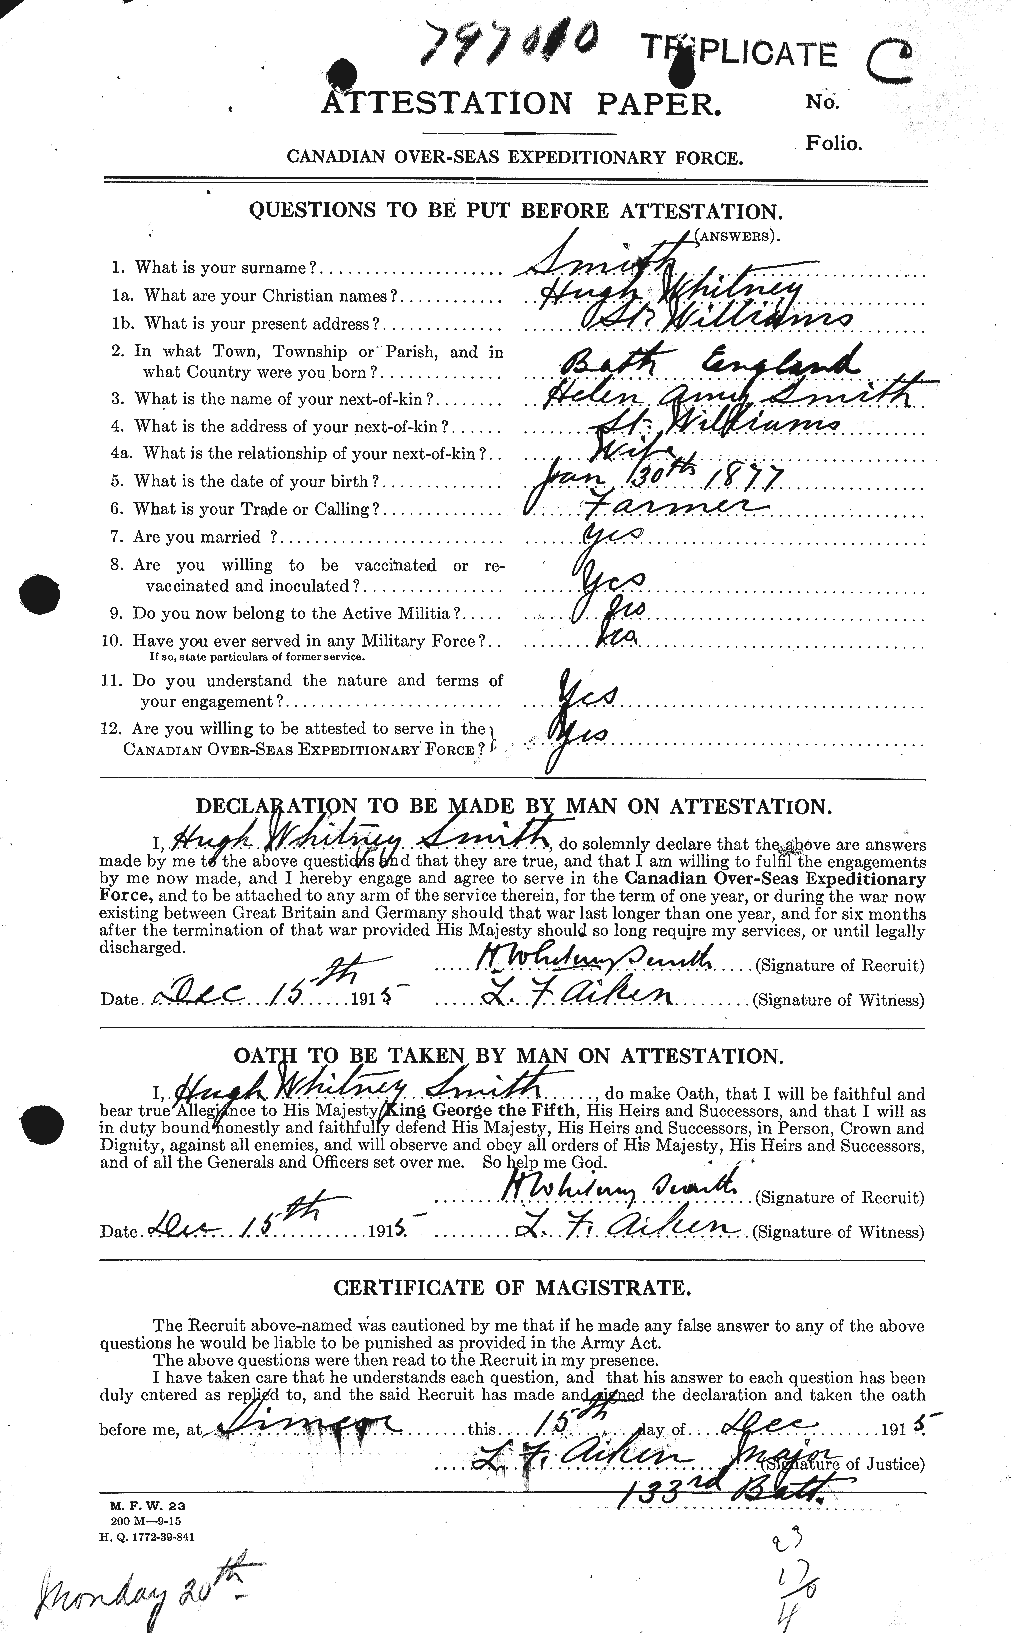 797010 TRIPLICATE C
ATTESTATION PAPER. No.
Folio.
CANADIAN OVER-SEAS EXPEDITIONARY FORCE.
QUESTIONS TO BE PUT BEFORE ATTESTATION.
(ANSWERS).
1. What is your surname? Smith
1a. What are your Christian names? Hugh Whitney
1b. What is your present address? St. Williams
2. In what Town, Township or Parish, and in
what Country were you born? Bath England
3. What is the name of your next-of-kin? Helen Amy Smith
4. What is the address of your next-of-kin? St. Williams
4a. What is the relationship of your next-of-kin? Wife
5. What is the date of your birth? Jan 30th 1877
6. What is your Trade or Calling? Farmer
7. Are you married ? yes
8. Are you willing to be vaccinated or re-
vaccinated and inoculated? Yes
9. Do you now belong to the Active Militia? Yes
10. Have you ever served in any Military Force?
If so, state particulars of former service.
11. Do you understand the nature and terms of
your engagement? Yes
12. Are you willing to be attested to serve in the
CANADIAN OVER-SEAS EXPEDITIONARY FORCE? Yes
DECLARATION TO BE MADE BY MAN ON ATTESTATION.
I, Hugh Whitney Smith, do solemnly declare that the above are answers
made by me to the above questions and that they are true, and that I am willing to fulfil the engagements
by me now made, and I hereby engage and agree to serve in the Canadian Over-Seas Expeditionary
Force, and to be attached to any arm of the service therein, for the term of one year, or during the war now
existing between Great Britain and Germany should that war last longer than one year, and for six months
after the termination of that war provided His Majesty should so long require my services, or until legally
discharged.
H Whitney Smith (Signature of Recruit)
Date Dec 15th 1915 L. F. Aiken (Signature of Witness)
OATH TO BE TAKEN BY MAN ON ATTESTATION.
I, Hugh Whitney Smith, do make Oath, that I will be faithful and
bear true Allegiance to His Majesty King George the Fifth, His Heirs and Successors, and that I will as
in duty bound honestly and faithfully defend His Majesty, His Heirs and Successors, in Person, Crown and
Dignity, against all enemies, and will observe and obey all orders of His Majesty, His Heirs and Successors,
and of all the Generals and Officers set over me. So help me God.
H Whitney Smith (Signature of Recruit)
Date Dec 15th 1915 L. F. Aiken (Signature of Witness)
CERTIFICATE OF MAGISTRATE.
The Recruit above-named was cautioned by me that if he made any false answer to any of the above
questions he would be liable to be punished as provided in the Army Act.
The above questions were then read to the Recruit in my presence.
I have taken care that he understands each question, and that his answer to each question has been
duly entered as replied to, and the said Recruit has made and signed the declaration and taken the oath
before me, at Simcoe this 15th day of Dec 1915
L. F. Aiken Major (Signature of Justice)
133rd Batt.
M. F. W. 23
200 M—9-15
H. Q. 1772-39-841
Monday 20th
23